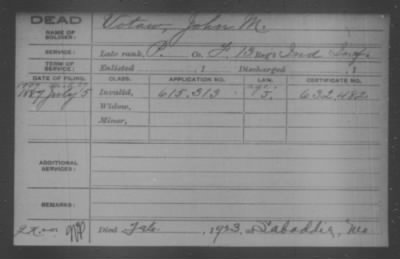 DEAD
NAME OF SOLDIER: Votaw, John M.
SERVICE: Late rank, P. Co. F, 13 Reg't Ind Inf.
TERM OF SERVICE: Enlisted , 1 Discharged , 1
DATE OF FILING. CLASS. APPLICATION NO. LAW. CERTIFICATE NO.
1887 July 5 Invalid, 615.313 632.482
Widow,
Minor,
ADDITIONAL SERVICES:
REMARKS:
Died Feb. 1923, Mo.